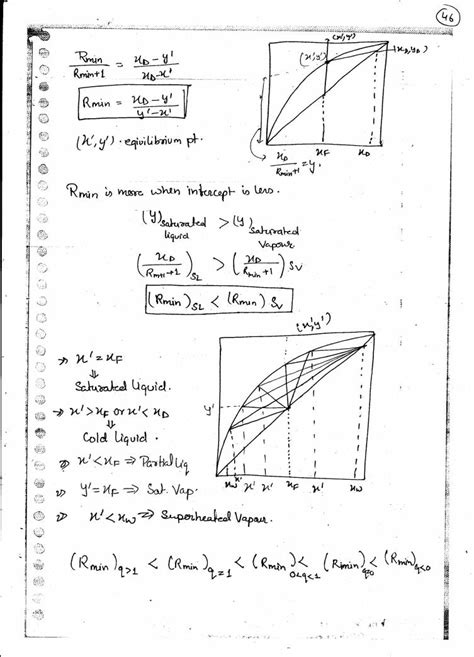 46
Rmin / Rmin+1 = xD - y' / xD - x'
Rmin = xD - y' / y' - x'
(x', y') - equilibrium pt.
(x', y')
(x', y')
(xD, yD)
xF
xD
xD / Rmin+1 = y.
Rmin is more when intercept is less.
(y) saturated liquid > (y) saturated vapour
(xD / Rmin+1) SL > (xD / Rmin+1) SV
(Rmin) SL < (Rmin) SV
(x', y')
y'
xW x' x' x' xF x' xD
⇒ x' = xF
⇓
Saturated Liquid.
⇒ x' > xF or x' < xD
⇓
Cold Liquid.
⇒ x' < xF ⇒ Partial Liq
⇒ y' = xF ⇒ Sat. Vap.
⇒ x' < xW ⇒ Superheated Vapour.
(Rmin) q>1 < (Rmin) q=1 < (Rmin) 0<q<1 < (Rmin) q=0 < (Rmin) q<0